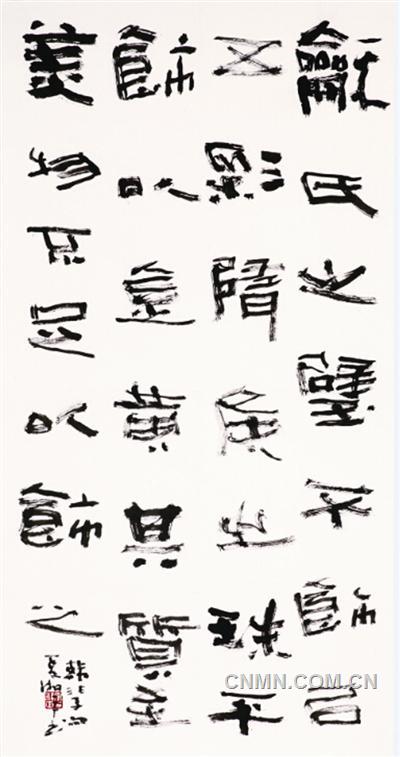 龢氏之璧不飾㠯
五彩隋侯之珠不
飾以銀黄其質至
美物不足以飾之
韓非子句
夏湘平书
CNMN.COM.CN